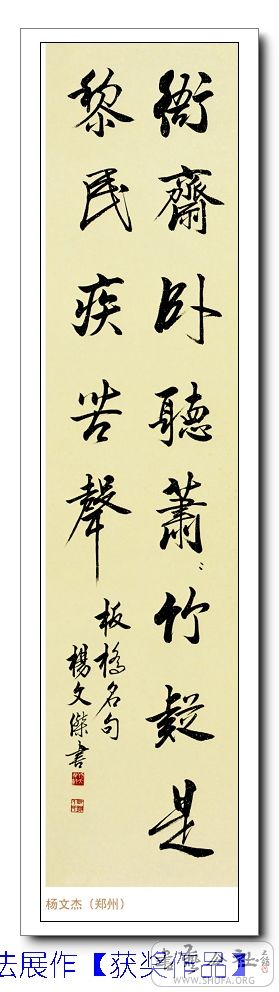 衙齋卧聽蕭〻竹疑是
黎民疾苦聲
板橋名句
楊文傑書
杨文杰（郑州）
法展作【获奖作品】
书法公社
WWW.SHUFA.ORG